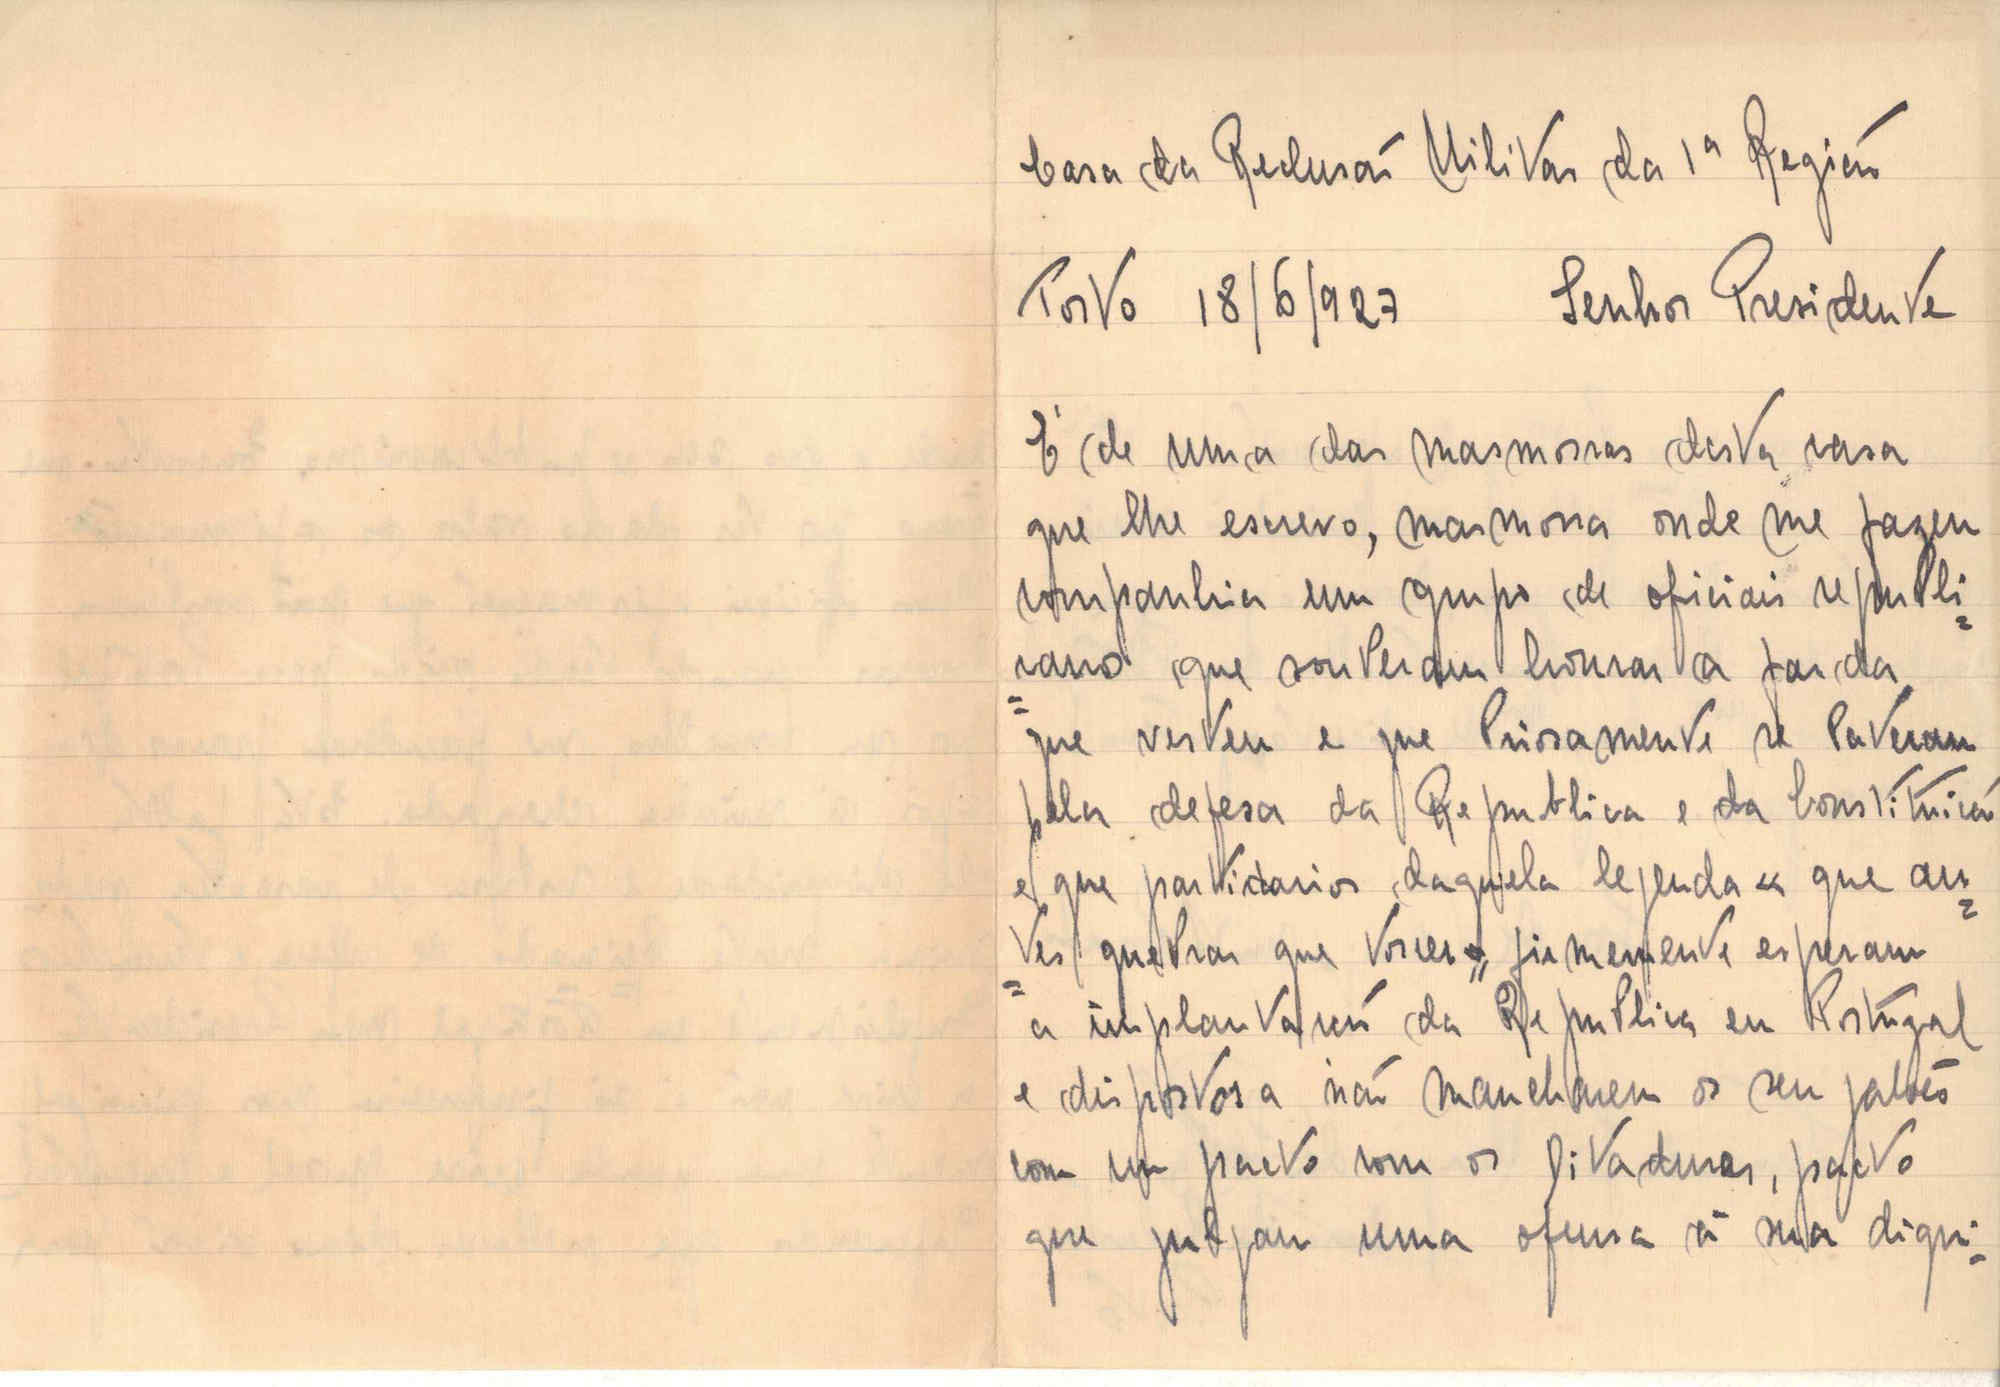 Casa da Reclusaõ Militar da 1ª Região
Porto 18/6/927 Senhor Presidente
É de uma das masmorras desta casa
que lhe escrevo, masmorra onde me fazem
companhia um grupo de oficiais republi=
=canos que souberam honrar a farda
que vestem e que briosamente se bateram
pela defesa da Republica e da Constituicão
e que partidarios daquela legenda « que an=
=tes quebrar que torcer» firmemente esperam
a implantacão da Republica em Portugal
e dispostos a não mancharem os seu galões
com um pacto com os ditadures, pacto
que julgam uma ofensa á sua digni=